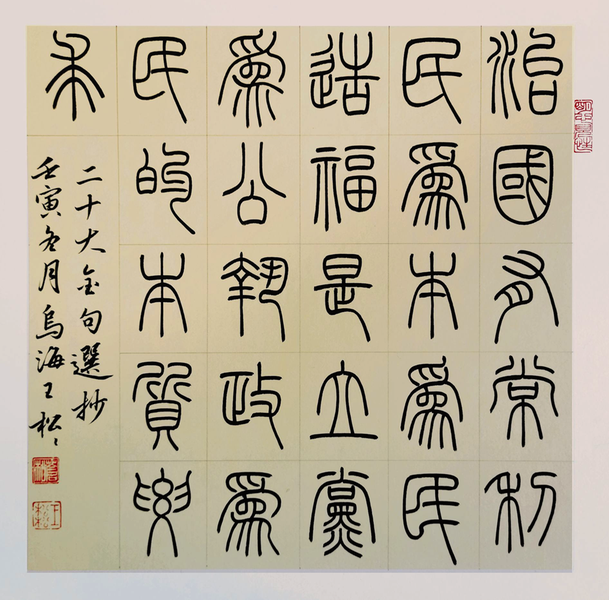 治國有常利
民爲本爲民
造福是立黨
爲公執政爲
民的本質要
求
二十大金句選抄
壬寅冬月烏海王松〻